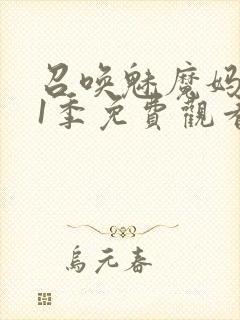 召唤魅魔妈
1季免費觀看
烏元春